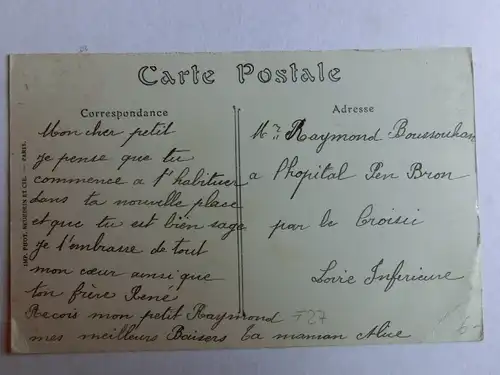 Carte Postale
Correspondance
Mon cher petit
je pense que tu
commence a t'habituer
dans ta nouvelle place
et que tu est bien sage
je t'embrasse de tout
mon cœur ainsi que
ton frère René
Recois mon petit Raymond
mes meilleurs Baisers ta maman Alice
Adresse
Mr Raymond
a l'hopital Pen Bron
par le Croisic
Loire Inferieure
IMP. PHOT. NEURDEIN ET CIE. — PARIS.
T27